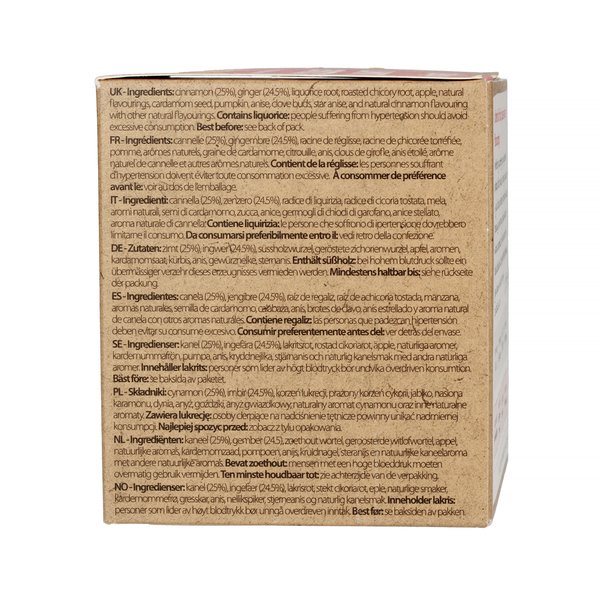 UK - Ingredients: cinnamon (25%), ginger (24.5%), liquorice root, roasted chicory root, apple, natural
flavourings, cardamom seed, pumpkin, anise, clove buds, star anise, and natural cinnamon flavouring
with other natural flavourings. Contains liquorice: people suffering from hypertension should avoid
excessive consumption. Best before: see back of pack.
FR - Ingrédients: cannelle (25%), gingembre (24.5%), racine de réglisse, racine de chicorée torréfiée,
pomme, arômes naturels, graine de cardamome, citrouille, anis, clous de girofle, anis étoilé, arôme
naturel de cannelle et autres arômes naturels. Contient de la réglisse: les personnes souffrant
d'hypertension doivent éviter toute consommation excessive. À consommer de préférence
avant le: voir au dos de l'emballage.
IT - Ingredienti: cannella (25%), zenzero (24.5%), radice di liquirizia, radice di cicoria tostata, mela,
aromi naturali, semi di cardamomo, zucca, anice, germogli di chiodi di garofano, anice stellato,
aroma naturale di cannella Contiene liquirizia: le persone che soffrono di ipertensione dovrebbero
limitarne il consumo. Da consumarsi preferibilmente entro il: vedi retro della confezione.
DE - Zutaten: zimt (25%), ingwer (24.5%), süssholzwurzel, geröstete zichorienwurzel, apfel, aromen,
kardamomsaat, kürbis, anis, gewürznelke, sternanis. Enthält süßholz: bei hohem blutdruck sollte ein
übermässiger verzehr dieses erzeugnisses vermieden werden. Mindestens haltbar bis: siehe rückseite
der packung.
ES - Ingredientes: canela (25%), jengibre (24.5%), raíz de regaliz, raíz de achicoria tostada, manzana,
aromas naturales, semilla de cardamomo, calabaza, anis, brotes de clavo, anis estrellado y aroma natural
de canela con otros aromas naturales. Contiene regaliz: las personas que padezcan hipertensión
deben evitar su consumo excesivo. Consumir preferentemente antes del: ver detrás del envase.
SE - Ingredienser: kanel (25%), ingefära (24.5%), lakritsrot, rostad cikoriarot, äpple, naturliga aromer,
kardemummafrön, pumpa, anis, kryddnejlika, stjärnanis och naturlig kanelsmak med andra naturliga
aromer. Innehåller lakrits: personer som lider av högt blodtryck bör undvika överdriven konsumtion.
Bäst före: se baksida av paketet.
PL - Składniki: cynamon (25%), imbir (24.5%), korzeń lukrecji, prażony korzeń cykorii, jabłko, nasiona
karamonu, dynia, anyż, goździki, anyż gwiazdkowy, naturalny aromat cynamonu oraz inne naturalne
aromaty. Zawiera lukrecję: osoby cierpiące na nadciśnienie tętnicze powinny unikać nadmiernej
konsumpcji. Najlepiej spozyc przed: zobacz z tylu opakowania.
NL - Ingrediënten: kaneel (25%), gember (24.5), zoethout wortel, geroosterde witlofwortel, appel,
natuurlijke aroma's, kardemomzaad, pompoen, anijs, kruidnagel, steranijs en natuurlijke kaneelaroma
met andere natuurlijke aroma's. Bevat zoethout: mensen met een hoge bloeddruk moeten
overmatig gebruik vermijden. Ten minste houdbaar tot: zie achterzijde van de verpakking.
NO - Ingredienser: kanel (25%), ingefær (24.5%), lakrisrot, stekt cikoriarot, eple, naturlige smaker,
kardemommefrø, gresskar, anis, nellikspiker, stjerneanis og naturlig kanelsmak. Inneholder lakris:
personer som lider av høyt blodtrykk bør unngå overdreven inntak. Best før: se baksiden av pakken.